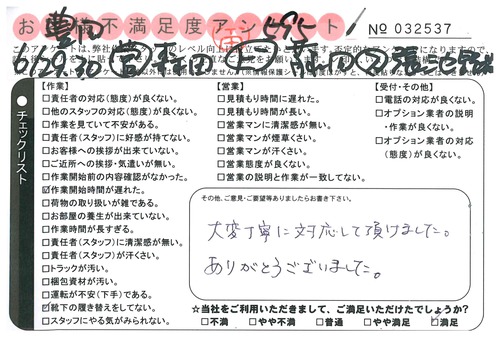 お客様不満足度アンケート!
No 032537
チェックリスト
【作業】
□責任者の対応(態度)が良くない。
□他のスタッフの対応(態度)が良くない。
□作業を見ていて不安がある。
□責任者(スタッフ)に好感が持てない。
□お客様への挨拶が出来ていない。
□ご近所への挨拶・気遣いが無い。
□作業開始前の内容確認がなかった。
☑作業開始時間が遅れた。
□荷物の取り扱いが雑である。
□お部屋の養生が出来ていない。
□作業時間が長すぎる。
□責任者(スタッフ)に清潔感が無い。
□責任者(スタッフ)が汗くさい。
□トラックが汚い。
□梱包資材が汚い。
□運転が不安(下手)である。
☑靴下の履き替えをしてない。
□スタッフにやる気がみられない。
【営業】
□見積もり時間に遅れた。
□見積もり時間が長い。
□営業マンに清潔感が無い。
□営業マンが煙草くさい。
□営業マンが汗くさい。
□営業態度が良くない。
□営業の説明と作業が一致してない。
【受付・その他】
□電話の対応が良くない。
□オプション業者の説明
・作業が良くない。
□オプション業者の対応
(態度)が良くない。
その他、ご意見・ご要望等ありましたらお書き下さい。
大変丁寧に対応して頂けました。
ありがとうございました。
☆当社をご利用いただきまして、ご満足いただけたでしょうか?
□不満 □やや不満 □普通 □やや満足 ☑満足